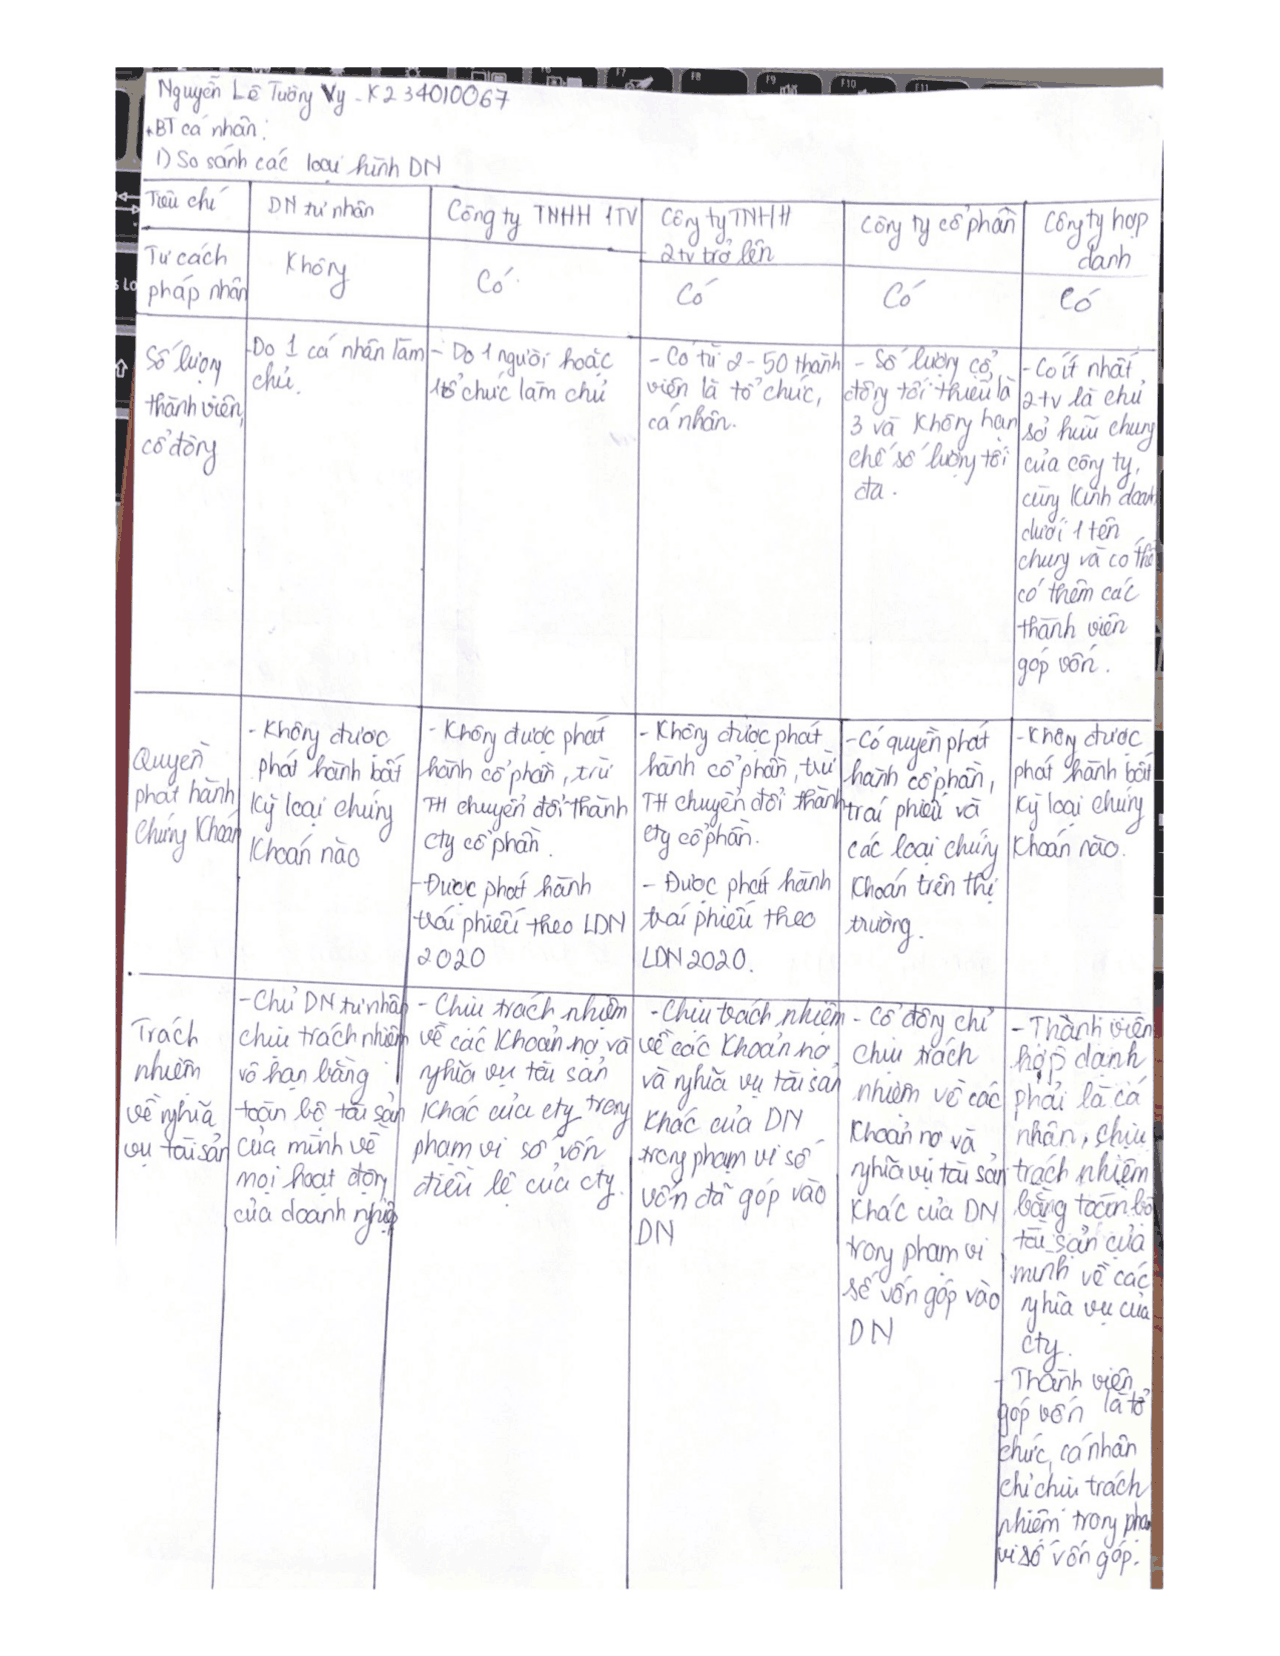 Nguyễn Lê Tường Vy - K234010067
* BT cá nhân:
1) So sánh các loại hình DN
Tiêu chí
DN tư nhân
Công ty TNHH 1TV
Công ty TNHH
2tv trở lên
Công ty cổ phần
Công ty hợp
danh
Tư cách
pháp nhân
Không
Có
Có
Có
Có
Số lượng
thành viên,
cổ đông
- Do 1 cá nhân làm
chủ.
- Do 1 người hoặc
1 tổ chức làm chủ
- Có từ 2 - 50 thành
viên là tổ chức,
cá nhân.
- Số lượng cổ
đông tối thiểu là
3 và không hạn
chế số lượng tối
đa.
- Có ít nhất
2tv là chủ
sở hữu chung
của công ty,
cùng kinh doanh
dưới 1 tên
chung và có thể
có thêm các
thành viên
góp vốn.
Quyền
phát hành
chứng khoán
- Không được
phát hành bất
kỳ loại chứng
khoán nào
- Không được phát
hành cổ phần, trừ
TH chuyển đổi thành
cty cổ phần.
- Được phát hành
trái phiếu theo LDN
2020
- Không được phát
hành cổ phần, trừ
TH chuyển đổi thành
cty cổ phần.
- Được phát hành
trái phiếu theo
LDN 2020.
- Có quyền phát
hành cổ phần,
trái phiếu và
các loại chứng
khoán trên thị
trường.
- Không được
phát hành bất
kỳ loại chứng
khoán nào.
Trách
nhiệm
về nghĩa
vụ tài sản
- Chủ DN tư nhân
chịu trách nhiệm
vô hạn bằng
toàn bộ tài sản
của mình về
mọi hoạt động
của doanh nghiệp
- Chịu trách nhiệm
về các khoản nợ và
nghĩa vụ tài sản
khác của cty trong
phạm vi số vốn
điều lệ của cty.
- Chịu trách nhiệm
về các khoản nợ
và nghĩa vụ tài sản
khác của DN
trong phạm vi số
vốn đã góp vào
DN
- Cổ đông chỉ
chịu trách
nhiệm về các
khoản nợ và
nghĩa vụ tài sản
khác của DN
trong phạm vi
số vốn góp vào
DN
- Thành viên
hợp danh
phải là cá
nhân, chịu
trách nhiệm
bằng toàn bộ
tài sản của
mình về các
nghĩa vụ của
cty.
- Thành viên
góp vốn là tổ
chức, cá nhân
chỉ chịu trách
nhiệm trong phạm
vi số vốn góp.
F7
F8
F9
F10